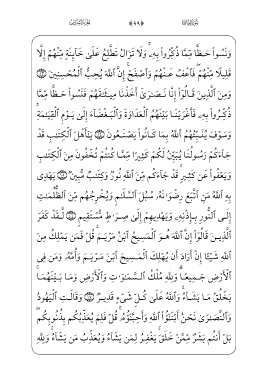 وَنَسُوا۟ حَظًّا مِّمَّا ذُكِّرُوا۟ بِهِۦ ۚ وَلَا تَزَالُ تَطَّلِعُ عَلَىٰ خَآئِنَةٍ مِّنْهُمْ إِلَّا
قَلِيلًا مِّنْهُمْ ۖ فَٱعْفُ عَنْهُمْ وَٱصْفَحْ ۚ إِنَّ ٱللَّهَ يُحِبُّ ٱلْمُحْسِنِينَ
وَمِنَ ٱلَّذِينَ قَالُوٓا۟ إِنَّا نَصَـٰرَىٰٓ أَخَذْنَا مِيثَـٰقَهُمْ فَنَسُوا۟ حَظًّا مِّمَّا
ذُكِّرُوا۟ بِهِۦ فَأَغْرَيْنَا بَيْنَهُمُ ٱلْعَدَاوَةَ وَٱلْبَغْضَآءَ إِلَىٰ يَوْمِ ٱلْقِيَـٰمَةِ ۚ
وَسَوْفَ يُنَبِّئُهُمُ ٱللَّهُ بِمَا كَانُوا۟ يَصْنَعُونَ يَـٰٓأَهْلَ ٱلْكِتَـٰبِ قَدْ
جَآءَكُمْ رَسُولُنَا يُبَيِّنُ لَكُمْ كَثِيرًا مِّمَّا كُنتُمْ تُخْفُونَ مِنَ ٱلْكِتَـٰبِ
وَيَعْفُوا۟ عَن كَثِيرٍ ۚ قَدْ جَآءَكُم مِّنَ ٱللَّهِ نُورٌ وَكِتَـٰبٌ مُّبِينٌ يَهْدِى
بِهِ ٱللَّهُ مَنِ ٱتَّبَعَ رِضْوَٰنَهُۥ سُبُلَ ٱلسَّلَـٰمِ وَيُخْرِجُهُم مِّنَ ٱلظُّلُمَـٰتِ
إِلَى ٱلنُّورِ بِإِذْنِهِۦ وَيَهْدِيهِمْ إِلَىٰ صِرَٰطٍ مُّسْتَقِيمٍ لَّقَدْ كَفَرَ
ٱلَّذِينَ قَالُوٓا۟ إِنَّ ٱللَّهَ هُوَ ٱلْمَسِيحُ ٱبْنُ مَرْيَمَ ۚ قُلْ فَمَن يَمْلِكُ مِنَ
ٱللَّهِ شَيْـًٔا إِنْ أَرَادَ أَن يُهْلِكَ ٱلْمَسِيحَ ٱبْنَ مَرْيَمَ وَأُمَّهُۥ وَمَن فِى
ٱلْأَرْضِ جَمِيعًا ۗ وَلِلَّهِ مُلْكُ ٱلسَّمَـٰوَٰتِ وَٱلْأَرْضِ وَمَا بَيْنَهُمَا ۚ
يَخْلُقُ مَا يَشَآءُ ۚ وَٱللَّهُ عَلَىٰ كُلِّ شَىْءٍ قَدِيرٌ وَقَالَتِ ٱلْيَهُودُ
وَٱلنَّصَـٰرَىٰ نَحْنُ أَبْنَـٰٓؤُا۟ ٱللَّهِ وَأَحِبَّـٰٓؤُهُۥ ۚ قُلْ فَلِمَ يُعَذِّبُكُم بِذُنُوبِكُم ۖ
بَلْ أَنتُم بَشَرٌ مِّمَّنْ خَلَقَ ۚ يَغْفِرُ لِمَن يَشَآءُ وَيُعَذِّبُ مَن يَشَآءُ ۚ وَلِلَّهِ